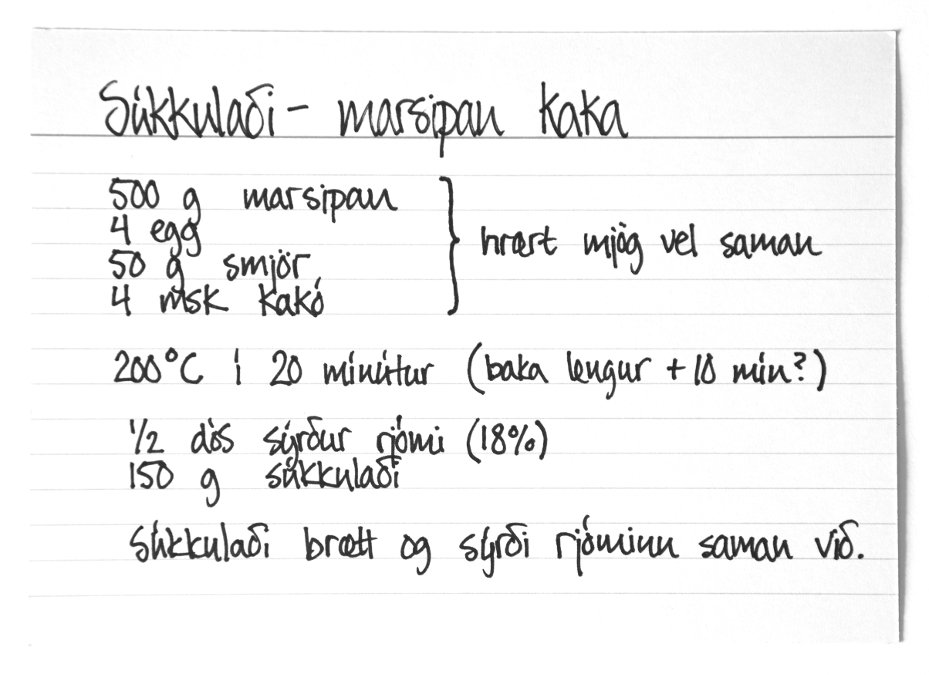 Súkkulaði - marsipan kaka
500 g marsipan
4 egg
50 g smjör
4 msk kakó
} hrært mjög vel saman
200°C í 20 mínútur (baka lengur + 10 mín?)
1/2 dós sýrður rjómi (18%)
150 g súkkulaði
Súkkulaði brætt og sýrði rjóminn saman við.